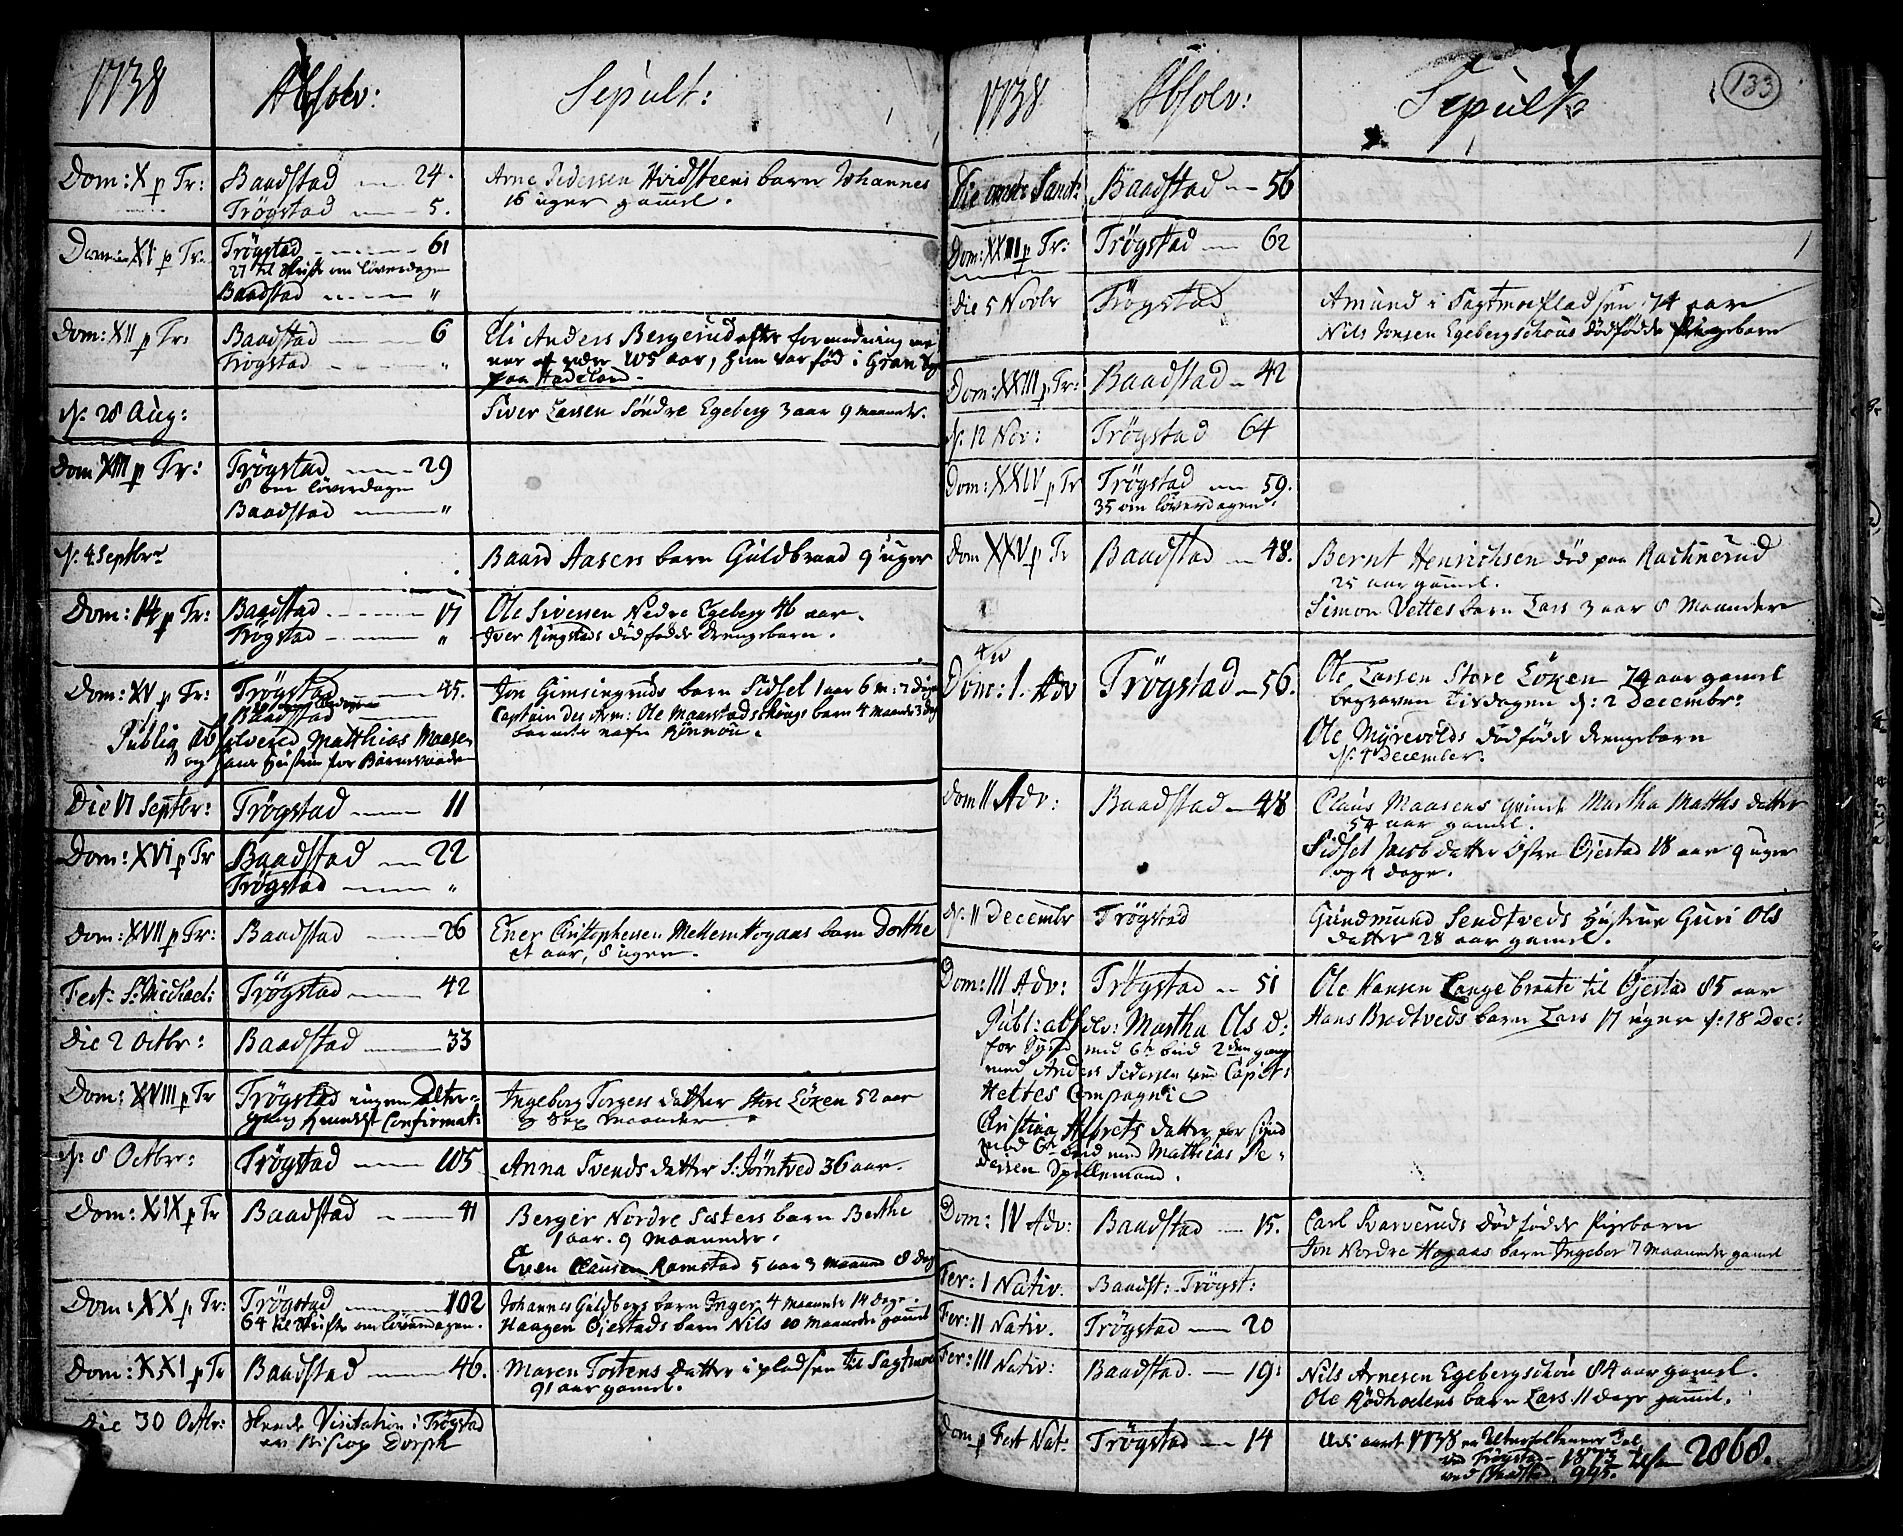 1738 Absolv: Sepult:
Dom: X p Tr: Baadstad 24. Arne Pedersen Hvidsteens barn Johannes
Trögstad 5. 16 uger gamel.
Dom: XI p Tr: Trögstad 61
27 til skrifte om löverdagen
Baadstad "
Dom: XII p Tr: Baadstad 6 Eli Anders Bergerud efter formodning
Trögstad " 105 aar, hun var föd i Gran
paa Hadeland.
d. 28 Aug: Siver Larsen Söndre Egeberg 3 aar 9 maaneder.
Dom XIII p Tr: Trögstad 29
8 om löverdagen
Baadstad "
d. 4 Septbr Baard Aasens barn Guldbrand 9 uger
Dom: 14 p Tr: Baadstad 17 Ole Sivessen Nedre Egeberg 46 aar.
Trögstad " Iver Ringstads dödfödde drengebarn.
Dom: XV p Tr: Trögstad 45. Jon Gimsingruds barn Sidsel 1 aar 6 m: 2 dage
Baadstad Captain des Arm: Ole Maarstadschougs barn 4 maaneder 3 dag
Public Absolvered Matthias Maasen ved nafn Rönnou.
og hans hustru for Barnevaade
Die 17 Septbr: Trögstad 11
Dom: XVI p Tr Baadstad 22
Trögstad "
Dom: XVII p Tr: Baadstad 26 Ener Christophersen Mellem Hogaas barn Dorthe
et aar, 8 uger.
Fest: S: Michael: Trögstad 42
Die 2 Octbr: Baadstad 33
Dom: XVIII p Tr Trögstad ingen Alter- Ingeborg Torgers datter Store Löken 52 aar
gang Confirmat: og Sex maaneder
d. 8 Octbr: Trögstad 105 Anna Svends datter S: Jörntved 36 aar.
Dom: XIX p Tr Baadstad 41 Berger Nordre Sæters barn Berthe
1 aar. 9 maaneder.
Even Clausen Ramstad 5 aar 3 maaned 8 dag
Dom: XX p Tr: Trögstad 102 Johannes Guldbergs barn Inger 4 maaneder 14 dage.
64 til skrifte om löverdagen. Haagen Ojestads barn Nils 10 maaneder gamel
Dom: XXI p Tr Baadstad 46. Maren Tostens datter i pladsen til Sagtmoe
91 aar gamel.
Die 30 Octbr: skeede Visitation i Trögstad
av Biscop Dorph

1738 Absolv: Sepult: 133
Die omn: Sanct: Baadstad 56
Dom: XXII p Tr: Trögstad 62
Die 5 Novbr Trögstad Amund i Sagtmoe Pladsen 74 aar
Nils Jonsen Egebergschous dödfödde pigebarn
Dom: XXIII p Tr: Baadstad 42
d. 12 Nov: Trögstad 64
Dom: XXIV p Tr Trögstad 59.
35 om löverdagen.
Dom XXV p Tr Baadstad 48. Bernt Henrichsen död paa Rachnerud
25 aar gamel.
Simon Vettes barn Lars 3 aar 8 Maaneder
Dom: 1. Adv Trögstad 56. Ole Larsen Store Löken 74 aar gamel
begraven Tirsdagen d: 2 Decembr:
Ole Myrevolds dödfödde drengebarn
d. 4 December.
Dom II Adv: Baadstad 48 Claus Maasens qvinde Martha Matths datter
54 aar gamel.
Sidsel Jacobdatter Östre Ojestad 18 aar 9 uger
og 4 dage.
d. 11 Decembr Trögstad Gundmund Sendtveds Hustrue Guri Ols
datter 28 aar gamel.
Dom: III Adv: Trögstad 51 Ole Hansen Langebraate til Ojestad 85 aar
Publ: absolv: Martha Ols d: Hans Bredtveds barn Lars 17 uger d: 18 Dec:
for Synd mod 6te bud 2den gang
med Anders Pedersen und Capit:
Heltes Compagnie
Cristina Albrets datter for Synd
mod 6te bud med Matthias Pe-
dersen Spillemand.
Dom: IV Adv: Baadstad 15. Carl Svarveruds Dödfödde Pigebarn
Jon Nordre Hogaas barn Ingebor 7 maaneder gamel
Fer: I Nativ. Baadst: Trögst:
Fer: II Nativ. Trögstad 20
Fer: III Nativ: Baadstad. 19: Nils Arnesen Egebergschou 84 aar gamel.
Ole Rödholens barn Lars 11 dage gamel.
Dom p Fest Nat: Trögstad 14 Udi aaret 1738 er
ved Trögstad 1873
ved Baadstad 995. 2868.